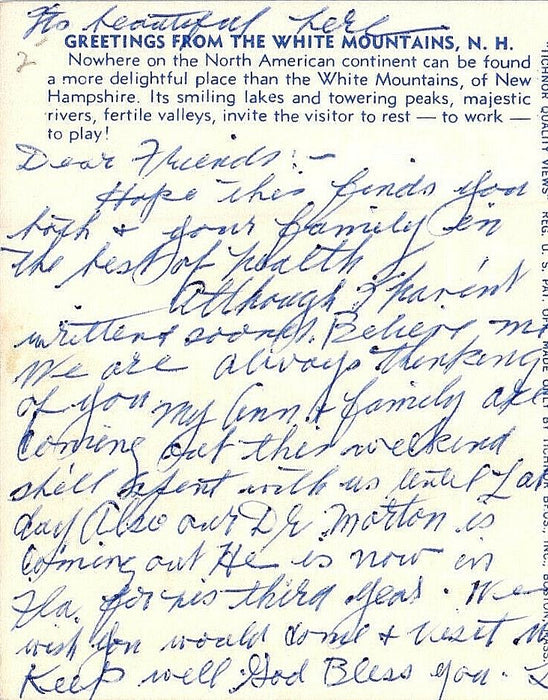 Its beautiful here
GREETINGS FROM THE WHITE MOUNTAINS, N. H.
2
Nowhere on the North American continent can be found
a more delightful place than the White Mountains, of New
Hampshire. Its smiling lakes and towering peaks, majestic
rivers, fertile valleys, invite the visitor to rest — to work —
to play!
Dear Friends:-
Hope this finds you
both + your family in
the best of health
Although I havint
written sooner. Believe me
We are always thinking
of you My Ann + family are
coming out this weekend
she'll spent with us until Lab
day Also our Dr. Morton is
coming out He is now in
Fla. for his third year. We
wish you would come + visit
Keep well God Bless you.
TICHNOR QUALITY VIEWS REG. U. S. PAT. OFF. MADE ONLY BY TICHNOR BROS., INC., BOSTON, MASS.